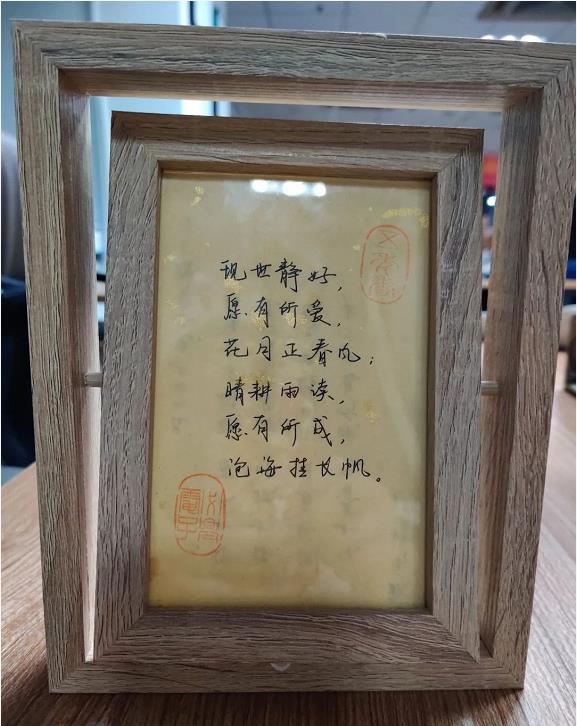 现世静好，
愿有所爱，
花月正春风；
晴耕雨读，
愿有所成，
沧海挂长帆。